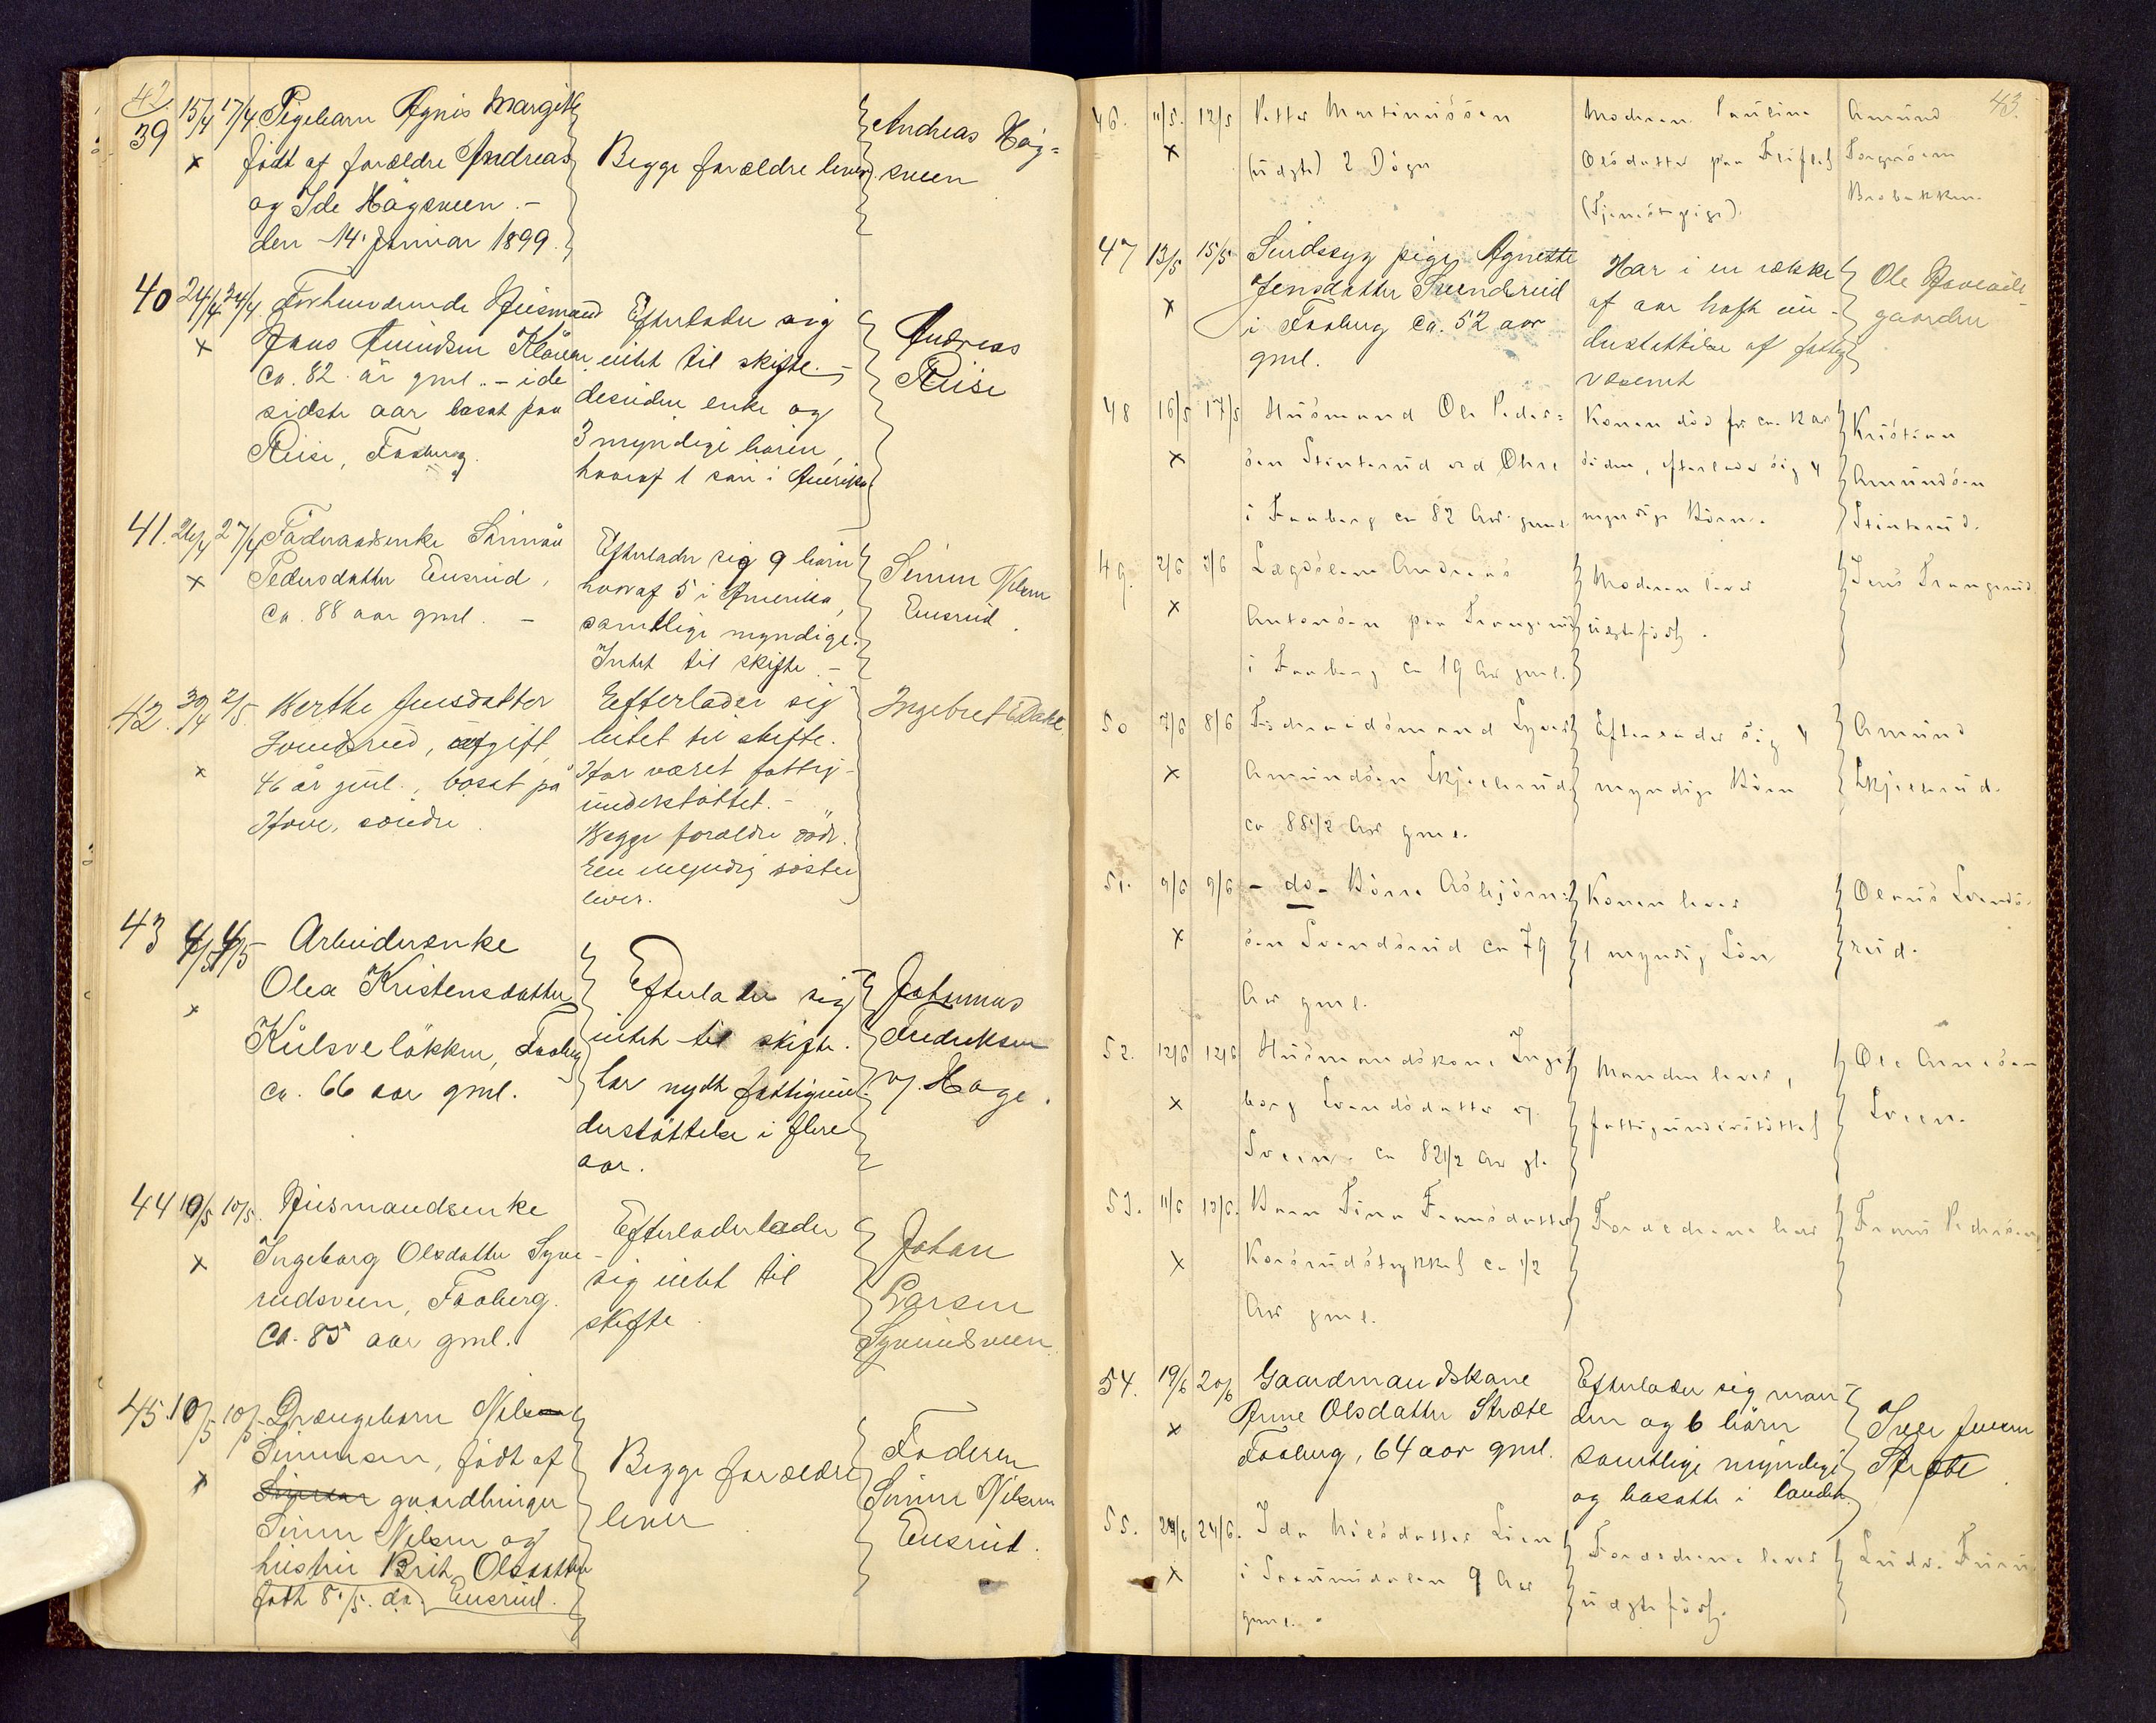 42.
39 15/4 17/4 Pigebarn Agnis Margith
født af forældre Andreas
og Ide Högsveen. –
den 14. Januar 1899.
Begge forældre lever.
Andreas Hög=
sveen
40 24/4 24/4. Forhenværende Husmand
Hans Amundsen
ca. 82 år gml. – i de
sidste aar bosat paa
Riise, Faaberg.
Efterlader sig
intet til skifte. –
desuden enke og
3 myndige børn,
hvoraf 1 søn i Amerika
Andreas
Riise
41. 26/4 27/4 Föderaadsenke
Pedersdatter Ensrud,
ca. 88 aar gml. –
Efterlader sig 9 børn
hvoraf 5 i Amerika,
samtlige myndige.
Intet til skifte –
Simen Nilsen
Ensrud.
42. 30/4 2/5. Berthe Jensdatter
Svendsrud, ugift,
46 år gml., bosat på
Hove, söndre.
Efterlader sig
intet til skifte.
Har været fattig-
understöttet. –
Begge forældre död.
Een myndig söster
lever.
Ingebret Dahl
43 4/5 4/5 Arbeiderenke
Olea Kristensdatter
Kulsvelökken, Faaberg
ca. 66 aar gml.
Efterlader sig
intet til skifte.
har nydt fattigun-
derstöttelse i flere
aar.
Johannes
Fredriksen
v/ Hage.
44 10/5 10/5. Husmandsenke
Ingeborg Olsdatter Syve-
rudsveen, Faaberg.
Ca. 85 aar gml.
Efterladerlader
sig intet til
skifte.
Johan
Larsen
Syverudsveen.
45. 10/5 10/5. Drængebarn Nils
Simensen, født af
gaardbruger
Simen Nilsen og
hustru Brit Olsdatter
født 8/5. ds. Ensrud.
Begge forældre
lever.
Faderen
Simen Nilsen
Ensrud.
43.
46. 11/5. 12/5 Petter Martinussen
(uægte) 2 Dögn
Moderen Pauline
Olsdatter paa
(Tjenestepige).
Amund
Brobakken.
47 13/5 15/5 Sindssyg pige Agnethe
Jensdatter Svendsrud
i Faaberg ca. 52 aar
gml.
Har i en række
af aar haft un-
derstøttelse af fattig
væsenet
Ole
gaarden
48 16/5 17/5 Husmand Ole Peder=
sen Stinterud ved Ohre
i Faaberg ca 82 Aar gml
Konen död for ca. 12 aar
siden, efterlader sig 4
myndige Börn.
Kristian
Amundsen
Stinterud.
49. 2/6 3/6 Lægdslem Andreas
Antonsen paa Trangsrud
i Faaberg ca 19 Aar gml.
Moderen lever
uægtefödt.
Jens Trangsrud.
50 7/6 8/6 Föderaadsmand Syver
Amundsen Skjellerud
ca 88 1/2 Aar gml.
Efterlader sig 4
myndige Börn
Amund
Skjellerud.
51. 9/6 9/6 – do – Börre Asbjörn=
sen Svendsrud ca 79
Aar gml.
Konen lever
1 myndig Sön
Olaus Svends-
rud.
52. 12/6 12/6 Husmandskone Inge-
borg Svendsdatter v/
Sveen. ca 82 1/2 Aar gl.
Manden lever,
fattigunderstöttet
Ole Arnesen
Sveen.
53. 11/6 13/6. Barn Tina Fransdatter
Korsrudstykket ca 1/2
Aar gml.
Forældrene lever
Frans Pedersen
54. 19/6 20/6 Gaardmandskone
Anne Olsdatter Stræte
Faaberg, 64 aar gml.
Efterlader sig man-
den og 6 börn
samtlige myndige
og bosatte i landet.
Iver Jensen
Stræte
55. 24/6 24/6. Ida Nilsdatter Lien
i Saxumdalen 9 Aar
gml.
Forældrene lever
uægtefödt.
Ludv. Furu